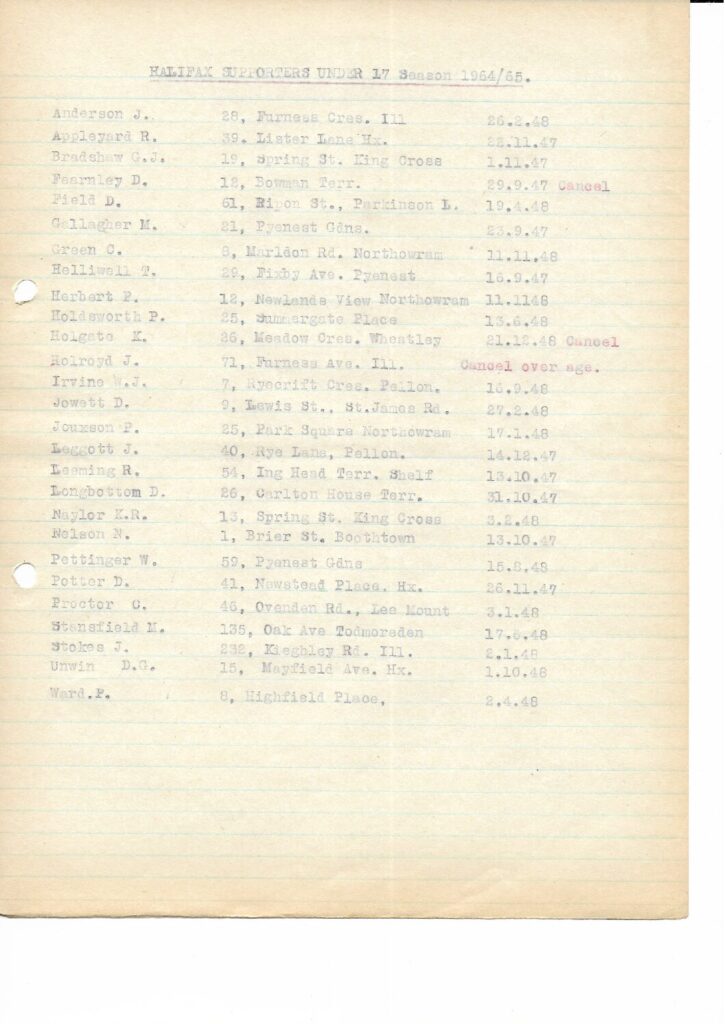 HALIFAX SUPPORTERS UNDER 17 Season 1964/65.
Anderson J. 28, Furness Cres. Ill 26.2.48
Appleyard R. 39. Lister Lane Hx. 22.11.47
Bradshaw G.J. 19, Spring St. King Cross 1.11.47
Fearnley D. 12, Bowman Terr. 29.9.47 Cancel
Field D. 61, Ripon St., Parkinson L. 19.4.48
Gallagher M. 21, Pyenest Gdns. 23.9.47
Green C. 8, Marldon Rd. Northowram 11.11.48
Helliwell T. 29, Fixby Ave. Pyenest 16.9.47
Herbert P. 12, Newlands View Northowram 11.1148
Holdsworth P. 25, Summergate Place 13.6.48
Holgate K. 26, Meadow Cres. Wheatley 21.12.48 Cancel
Holroyd J. 71, Furness Ave. Ill. Cancel over age.
Irvine W.J. 7, Ryecrift Cres. Pellon. 16.9.48
Jowett D. 9, Lewis St., St.James Rd. 27.2.48
Jouxson P. 25, Park Square Northowram 17.1.48
Leggott J. 40, Rye Lane, Pellon. 14.12.47
Leeming R. 54, Ing Head Terr. Shelf 13.10.47
Longbottom D. 26, Carlton House Terr. 31.10.47
Naylor K.R. 13, Spring St. King Cross 3.2.48
Nelson N. 1, Brier St. Boothtown 13.10.47
Pettinger W. 59, Pyenest Gdns 15.8.48
Potter D. 41, Newstead Place. Hx. 26.11.47
Proctor C. 46, Ovenden Rd., Lee Mount 3.1.48
Stansfield M. 135, Oak Ave Todmorsden
Stokes J. 232, Kieghley Rd. Ill. 2.1.48
Unwin D.G. 15, Mayfield Ave. Hx. 1.10.48
Ward.P. 8, Highfield Place, 2.4.48